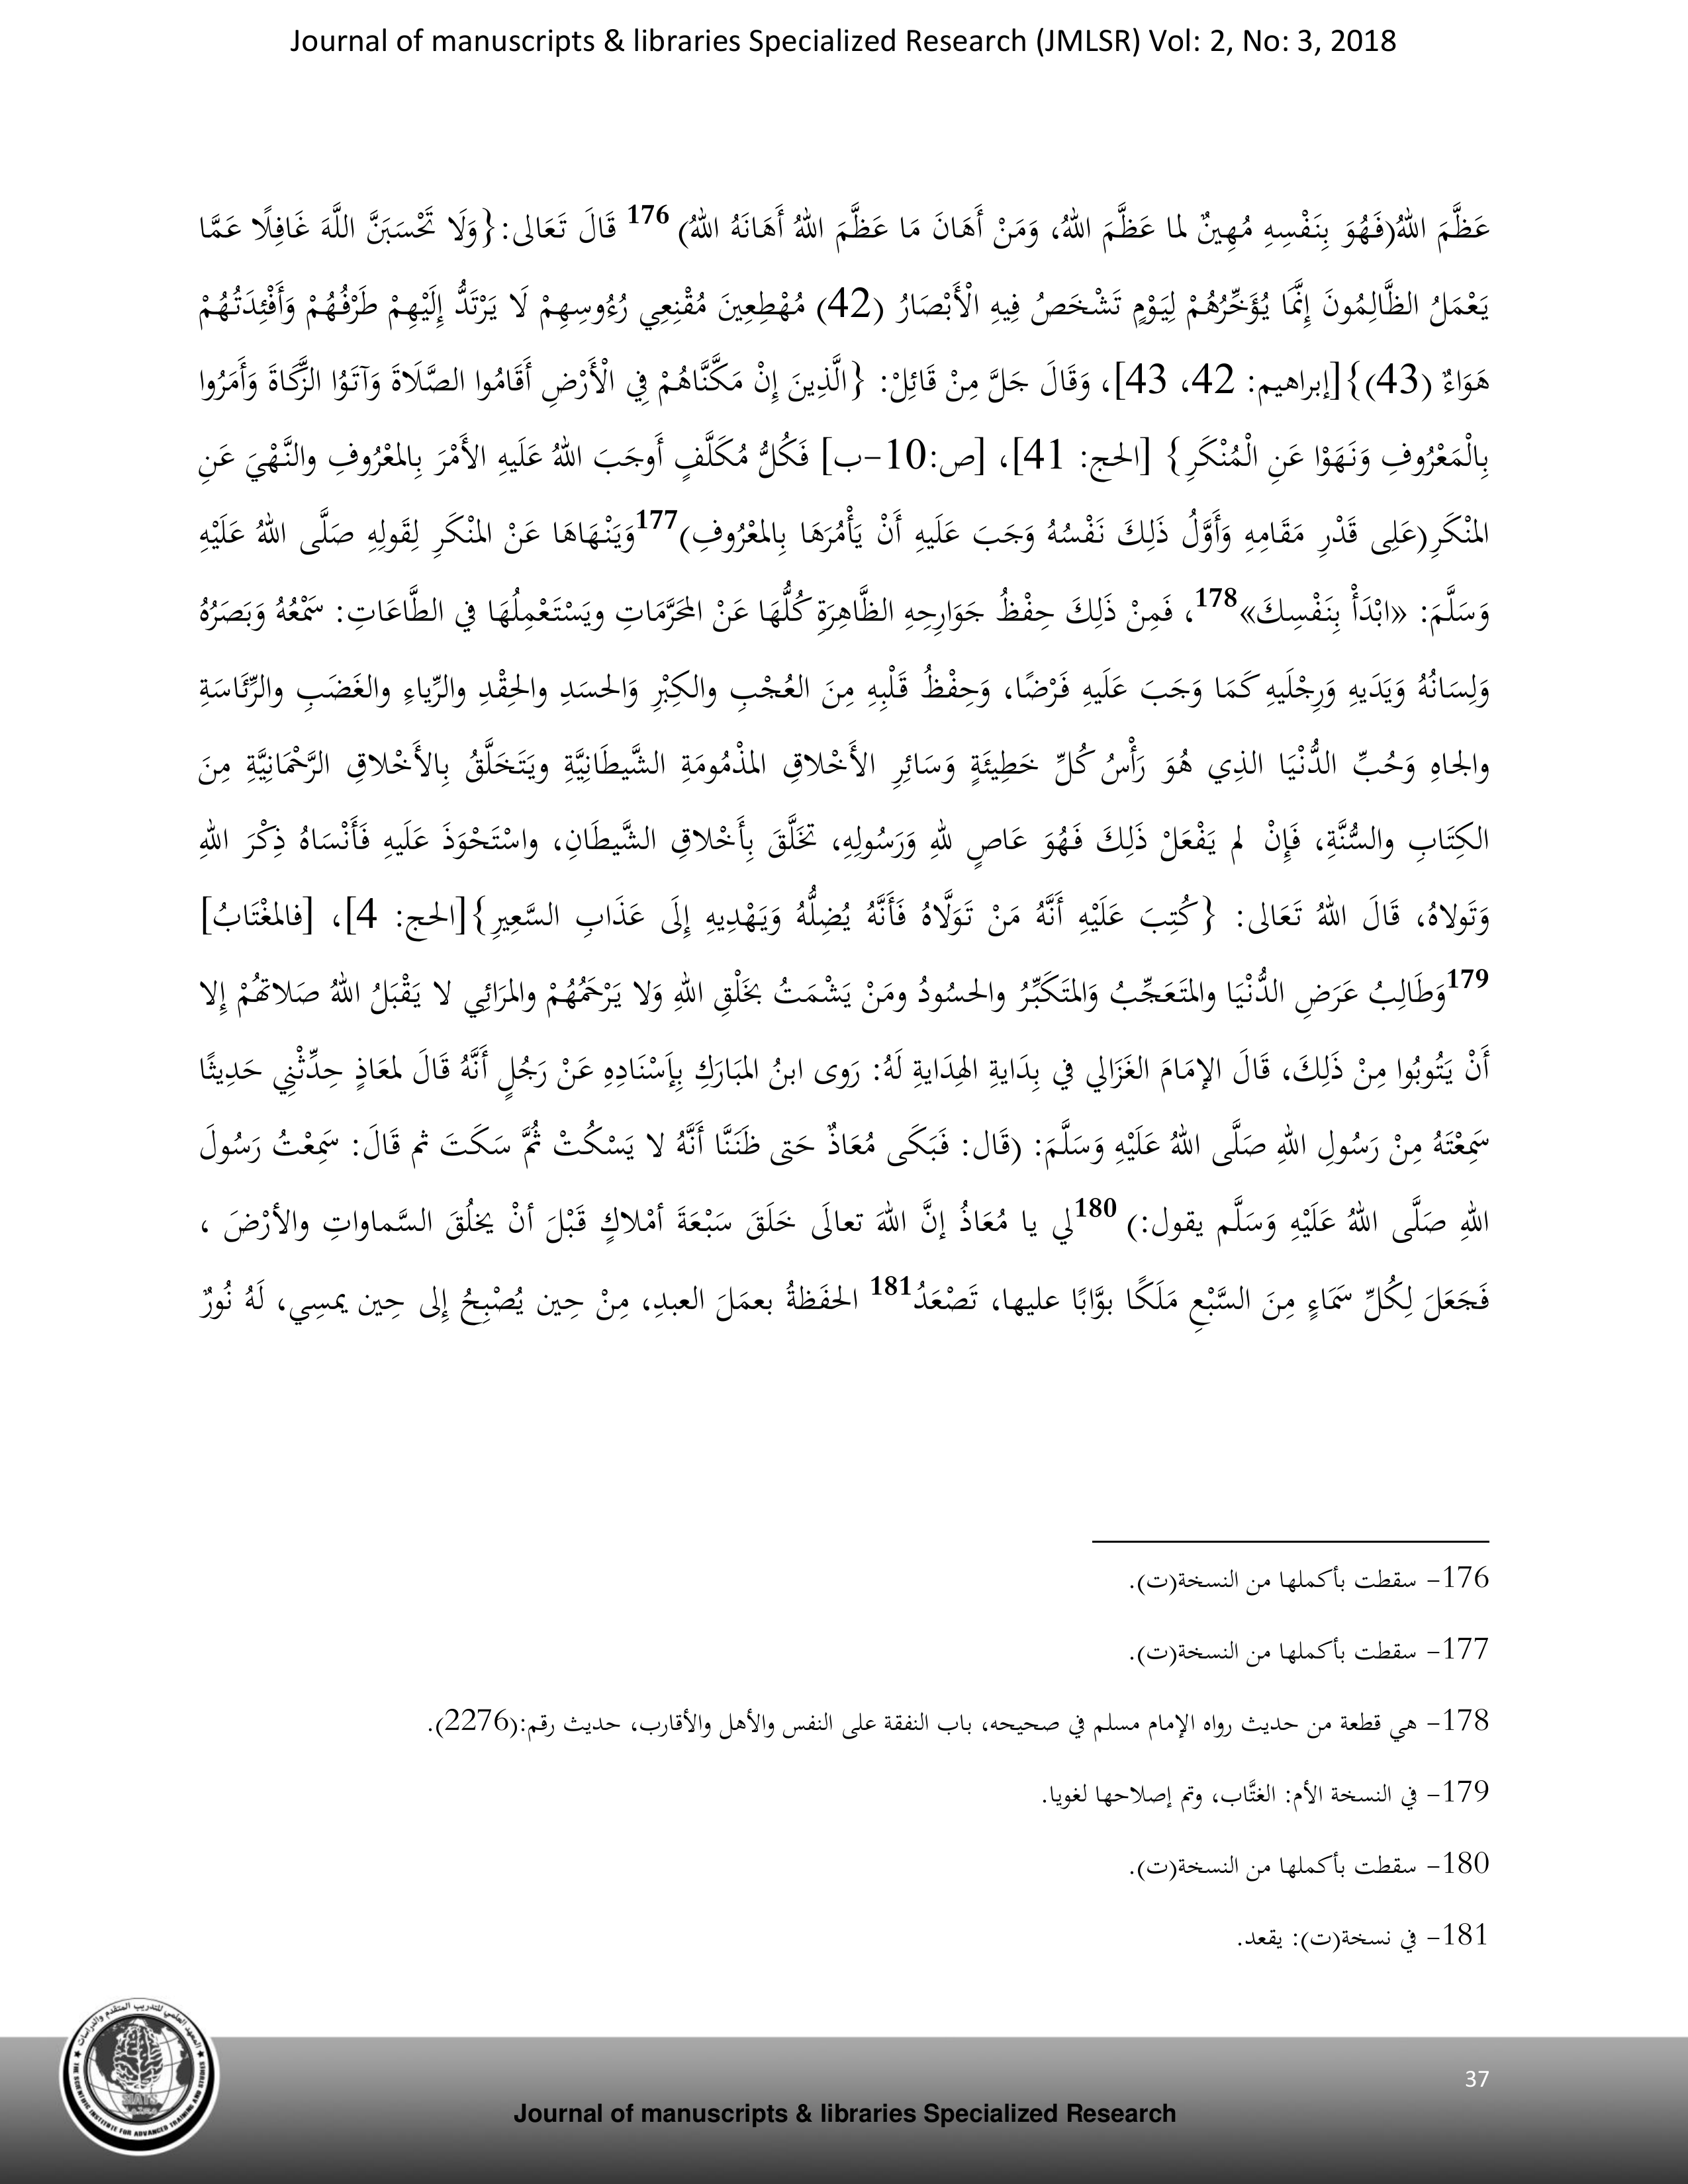 Journal of manuscripts & libraries Specialized Research (JMLSR) Vol: 2, No: 3, 2018
عَظَّمَ اللهُ(فَهُوَ بِنَفْسِهِ مُهِينٌ لما عَظَّمَ اللهُ، وَمَنْ أَهَانَ مَا عَظَّمَ اللهُ أَهَانَهُ اللهُ) 176 قَالَ تَعَالى:{وَلَا تَحْسَبَنَّ اللَّهَ غَافِلًا عَمَّا
يَعْمَلُ الظَّالِمُونَ إِنَّمَا يُؤَخِّرُهُمْ لِيَوْمٍ تَشْخَصُ فِيهِ الْأَبْصَارُ (42) مُهْطِعِينَ مُقْنِعِي رُءُوسِهِمْ لَا يَرْتَدُّ إِلَيْهِمْ طَرْفُهُمْ وَأَفْئِدَتُهُمْ
هَوَاءٌ (43)}[إبراهيم: 42، 43]، وَقَالَ جَلَّ مِنْ قَائِلْ: {الَّذِينَ إِنْ مَكَّنَّاهُمْ فِي الْأَرْضِ أَقَامُوا الصَّلَاةَ وَآتَوُا الزَّكَاةَ وَأَمَرُوا
بِالْمَعْرُوفِ وَنَهَوْا عَنِ الْمُنْكَرِ} [الحج: 41]، [ص:10-ب] فَكُلُّ مُكَلَّفٍ أَوجَبَ اللهُ عَلَيهِ الأَمْرَ بِالمعْرُوفِ والنَّهْيَ عَنِ
المنْكَرِ(عَلِى قَدْرِ مَقَامِهِ وَأَوَّلُ ذَلِكَ نَفْسُهُ وَجَبَ عَلَيهِ أَنْ يَأْمُرَهَا بِالمعْرُوفِ)177وَيَنْهَاهَا عَنْ المنْكَرِ لِقَولِهِ صَلَّى اللهُ عَلَيْهِ
وَسَلَّمَ: «ابْدَأْ بِنَفْسِكَ»178، فَمِنْ ذَلِكَ حِفْظُ جَوَارِحِهِ الظَّاهِرَةِ كُلُّهَا عَنْ المحَرَّمَاتِ ويَسْتَعْمِلُهَا في الطَّاعَاتِ: سَمْعُهُ وَبَصَرُهُ
وَلِسَانُهُ وَيَدَيهِ وَرِجْلَيهِ كَمَا وَجَبَ عَلَيهِ فَرْضًا، وَحِفْظُ قَلْبِهِ مِنَ العُجْبِ والكِبْرِ وَالحسَدِ والحِقْدِ والرِّياءِ والغَضَبِ والرِّئَاسَةِ
والجاهِ وَحُبِّ الدُّنْيَا الذِي هُوَ رَأْسُ كُلِّ خَطِيئَةٍ وَسَائِرِ الأَخْلاقِ المذْمُومَةِ الشَّيطَانِيَّةِ ويَتَخَلَّقُ بِالأَخْلاقِ الرَّحْمَانِيَّةِ مِنَ
الكِتَابِ والسُّنَّةِ، فَإِنْ لم يَفْعَلْ ذَلِكَ فَهُوَ عَاصٍ للهِ وَرَسُولِهِ، تَخَلَّقَ بِأَخْلاقِ الشَّيطَانِ، واسْتَحْوَذَ عَلَيهِ فَأَنْسَاهُ ذِكْرَ اللهِ
وَتَولاهُ، قَالَ اللهُ تَعَالى: {كُتِبَ عَلَيْهِ أَنَّهُ مَنْ تَوَلَّاهُ فَأَنَّهُ يُضِلُّهُ وَيَهْدِيهِ إِلَى عَذَابِ السَّعِيرِ}[الحج: 4]، [فالمغْتَابُ]
179وَطَالِبُ عَرَضِ الدُّنْيَا والمتَعَجِّبُ وَالمتَكَبِّرُ والحسُودُ ومَنْ يَشْمَتُ بخَلْقِ اللهِ وَلا يَرْحَمُهُمْ والمرَائِي لا يَقْبَلُ اللهُ صَلاتَهُمْ إِلا
أَنْ يَتُوبُوا مِنْ ذَلِكَ، قَالَ الإِمَامَ الغَزَالي في بِدَايةِ الهِدَايةِ لَهُ: رَوى ابنُ المبَارَكِ بِإَسْنَادِهِ عَنْ رَجُلٍ أَنَّهُ قَالَ لمعَاذٍ حِدِّثْنِي حَدِيثًا
سَمِعْتَهُ مِنْ رَسُولِ اللهِ صَلَّى اللهُ عَلَيْهِ وَسَلَّمَ: (قَال: فَبَكَى مُعَاذٌ حَتى ظَنَنَّا أَنَّهُ لا يَسْكُتْ ثُمَّ سَكَتَ ثم قَالَ: سَمِعْتُ رَسُولَ
اللهِ صَلَّى اللهُ عَلَيْهِ وَسَلَّم يقول:) 180لي يا مُعَاذُ إنَّ اللهَ تعالَى خَلَقَ سَبْعَةَ أمْلاكٍ قَبْلَ أنْ يخلُقَ السَّماواتِ والأرْضَ ،
فَجَعَلَ لِكُلِّ سَمَاءٍ مِنَ السَّبْعِ مَلَكًا بوَّابًا عليها، تَصْعَدُ181 الحفَظةُ بعمَلَ العبدِ، مِنْ حِين يُصْبِحُ إِلى حِين يمسِي، لَهُ نُورٌ
176- سقطت بأكملها من النسخة(ت).
177- سقطت بأكملها من النسخة(ت).
178- هي قطعة من حديث رواه الإمام مسلم في صحيحه، باب النفقة على النفس والأهل والأقارب، حديث رقم:(2276).
179- في النسخة الأم: الغتَّاب، وتم إصلاحها لغويا.
180- سقطت بأكملها من النسخة(ت).
181- في نسخة(ت): يقعد.
37
Journal of manuscripts & libraries Specialized Research